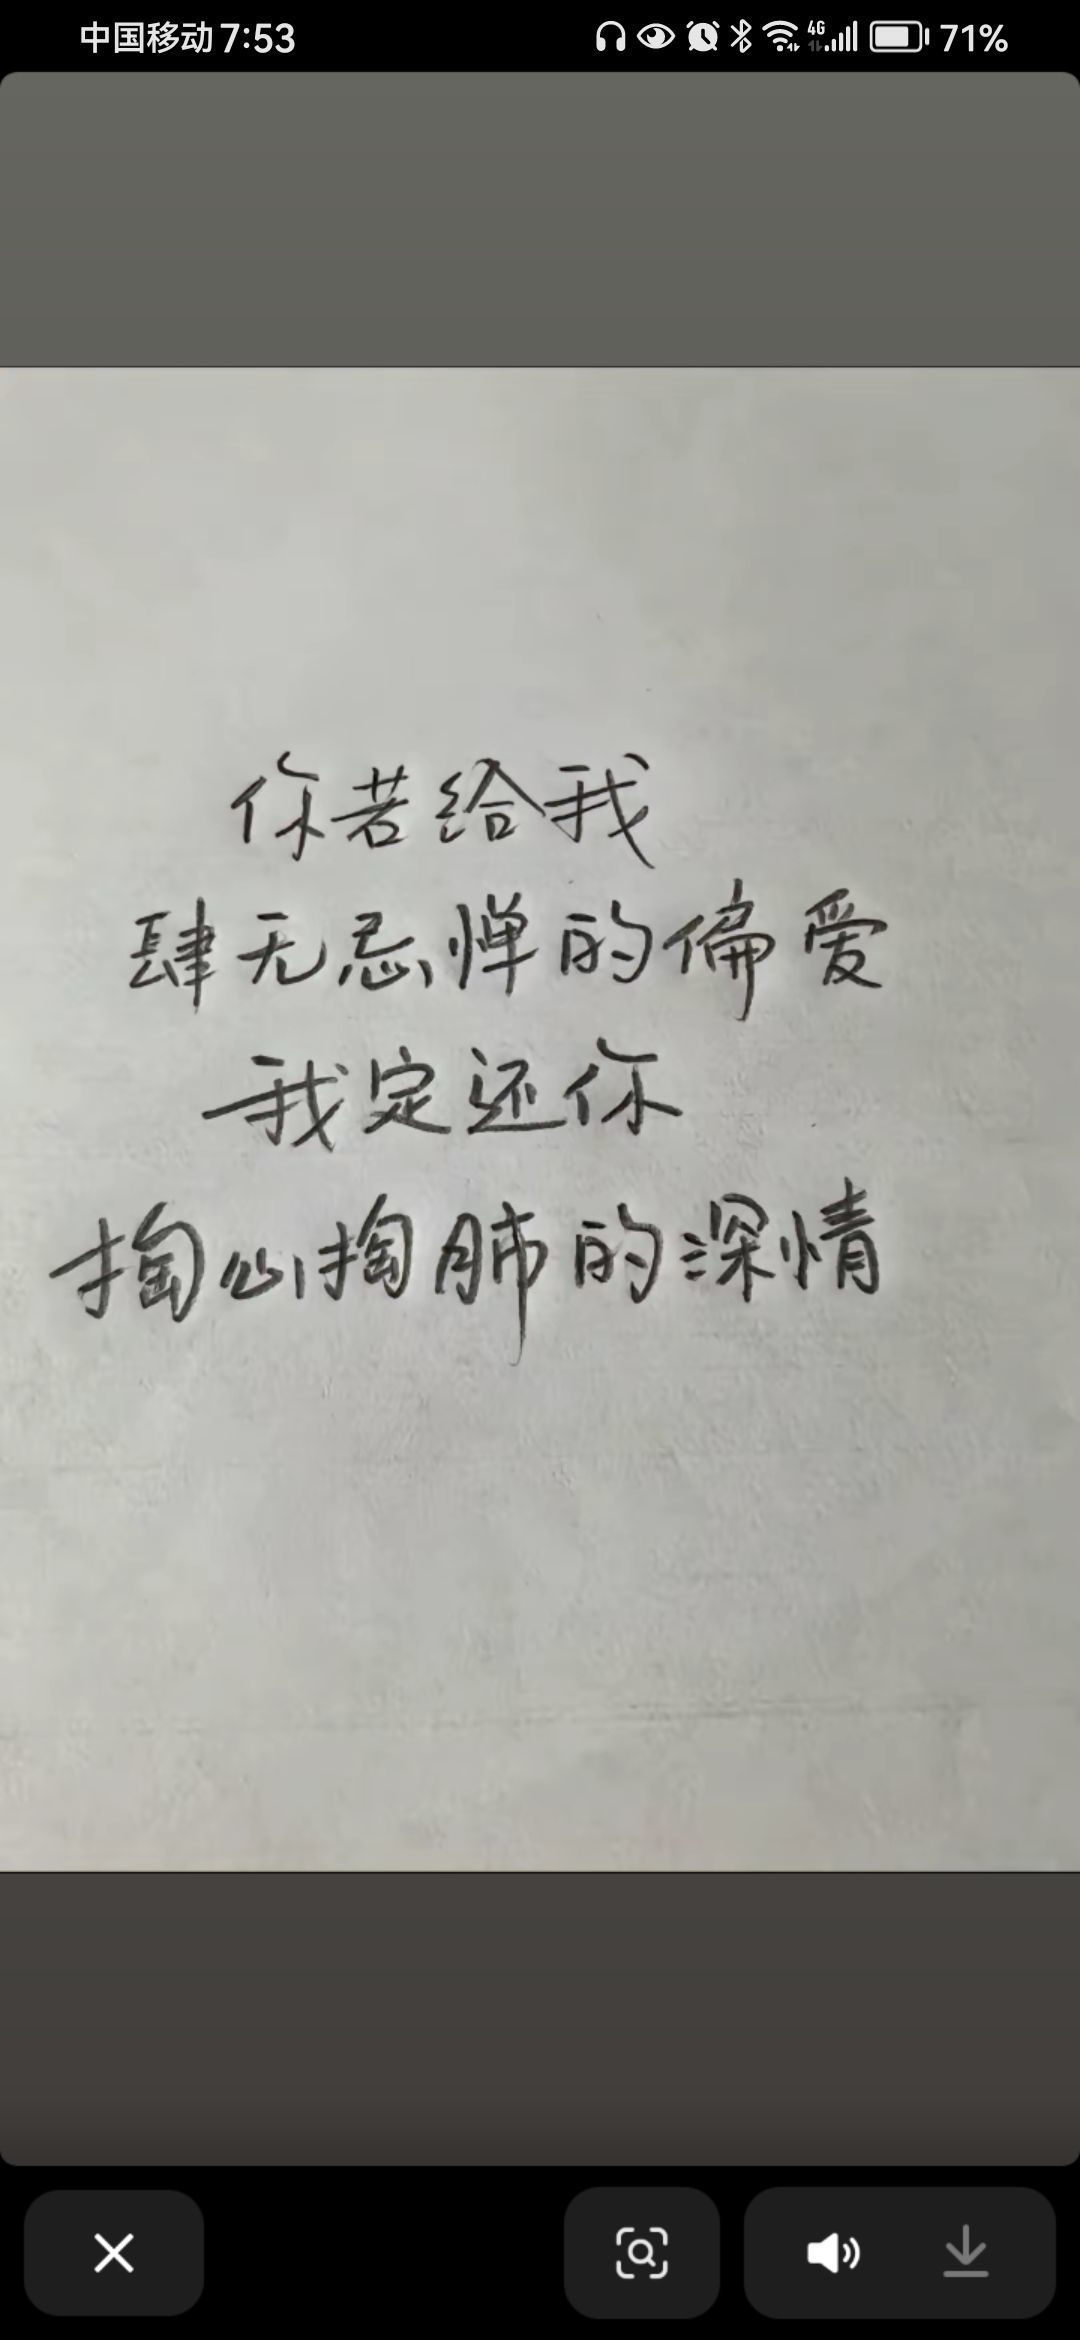 中国移动 7:53 4G 71%
你若给我
肆无忌惮的偏爱
我定还你
掏心掏肺的深情